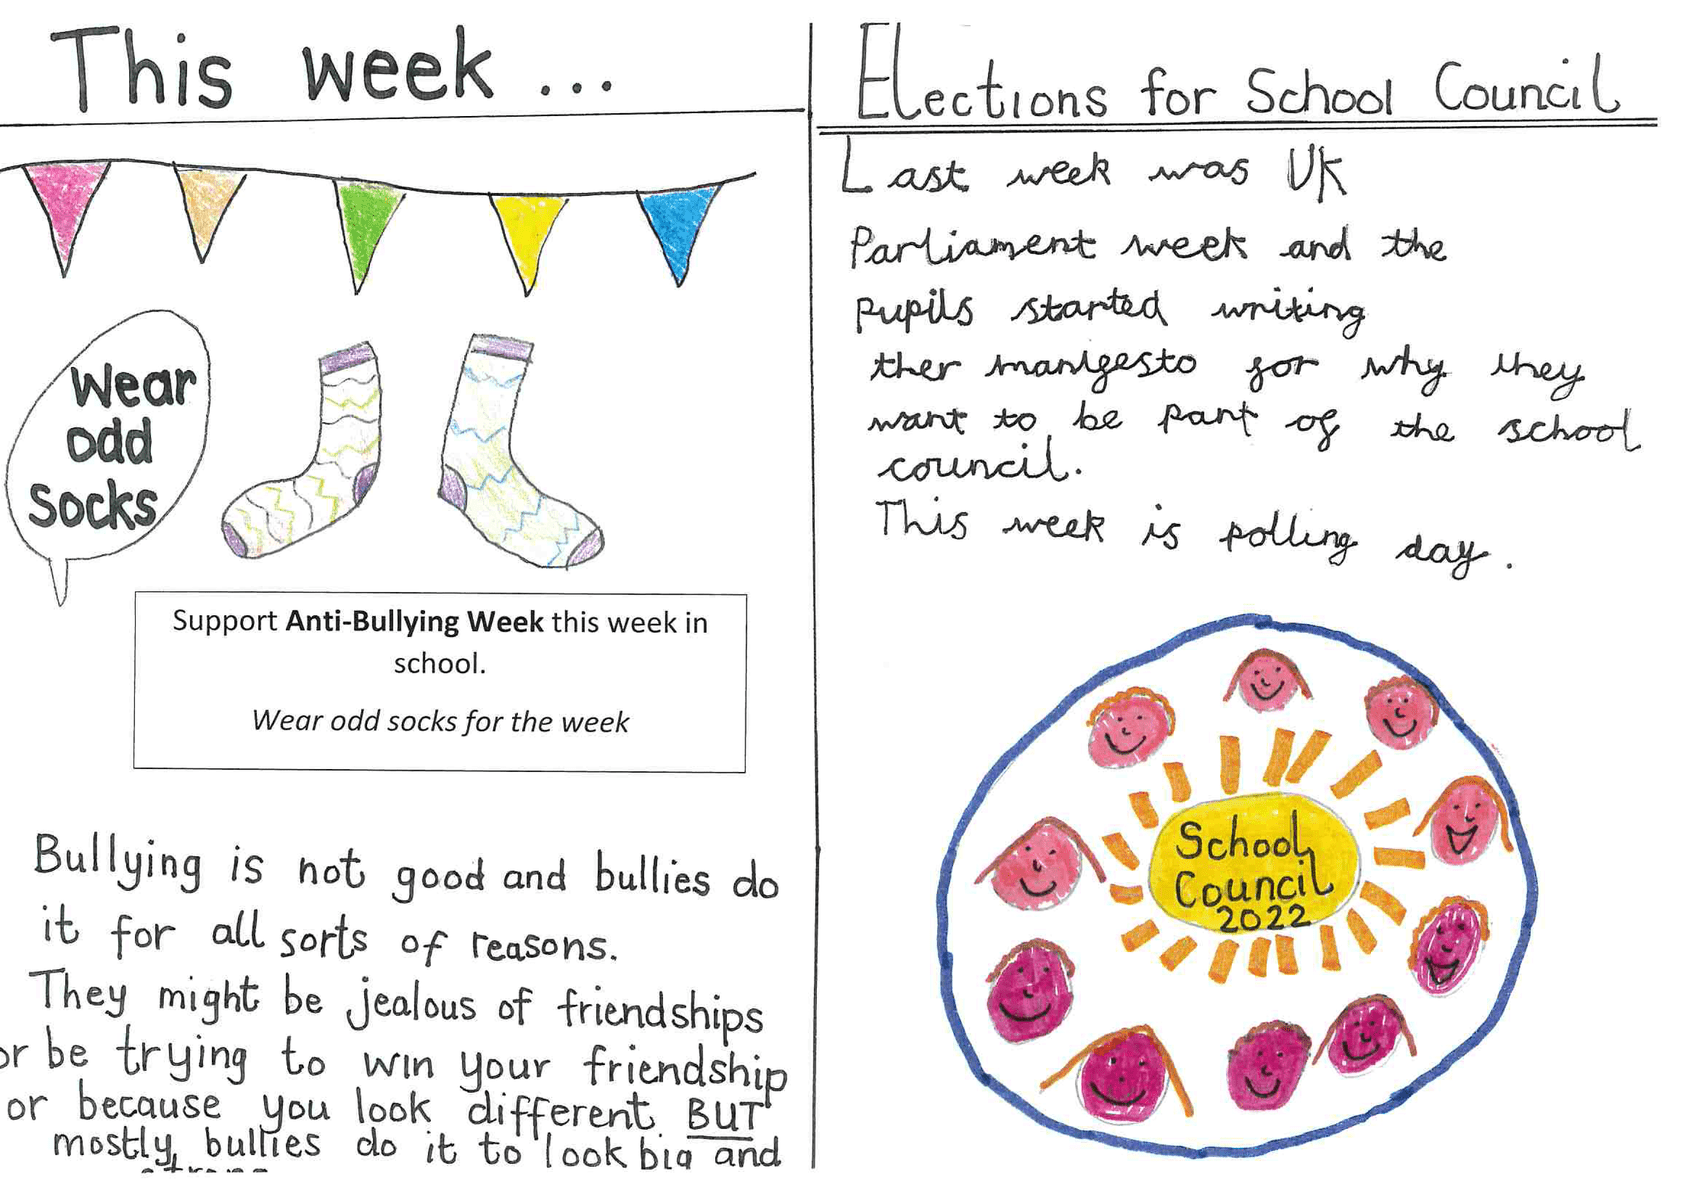 This week ...
Wear
odd
Socks
Support Anti-Bullying Week this week in
school.
Wear odd socks for the week
Bullying is not good and bullies do
it for all sorts of reasons.
They might be jealous of friendships
or be trying to win your friendship
or because you look different BUT
mostly bullies do it to look big and
Elections for School Council
Last week was UK
Parliament week and the
pupils started writing
ther manifesto for why they
want to be part of the school
council.
This week is polling day.
School
Council
2022